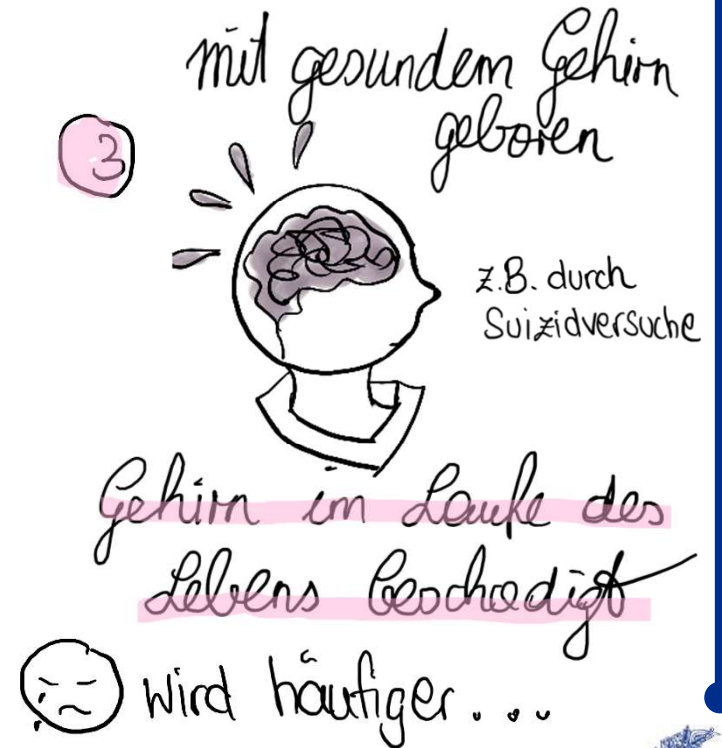 mit gesundem Gehirn
geboren
3
z.B. durch
Suizidversuche
Gehirn im Laufe des
Lebens beschädigt
wird häufiger...